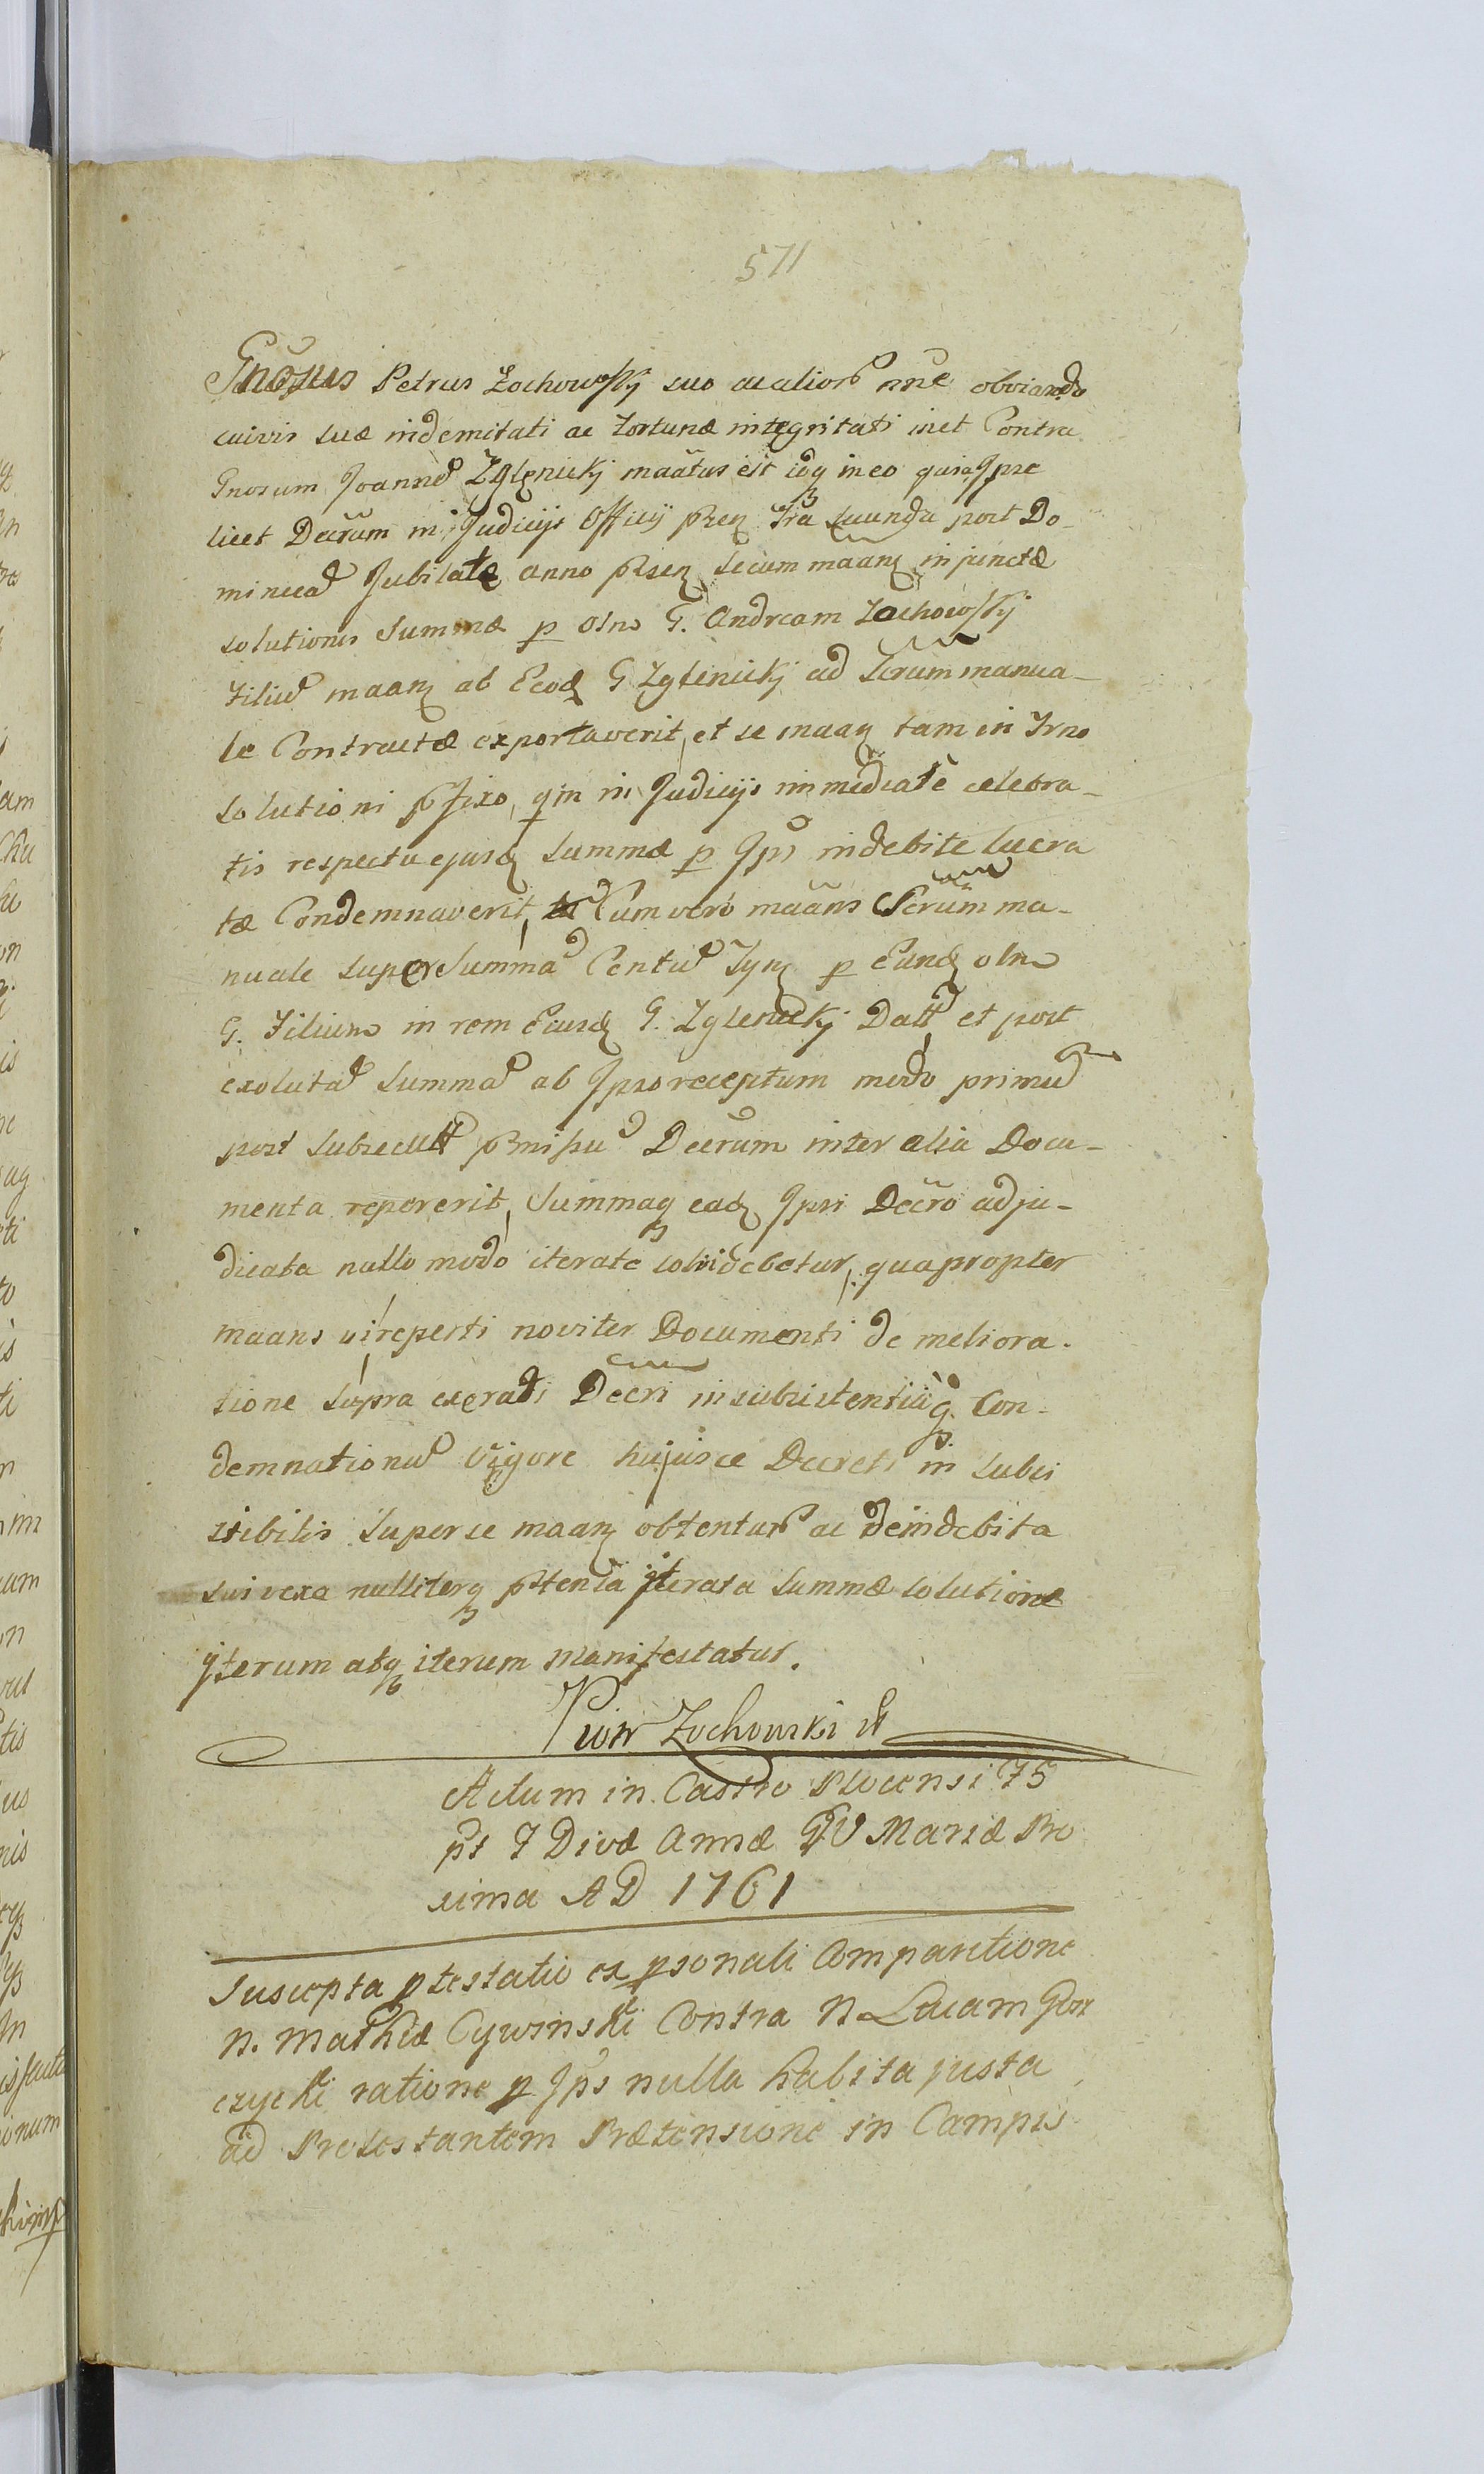 571
Gnosus Petrus Zochowsky suo acioliorũ nñe obviando
cuivis suæ indemitati ac fortunæ integritati inet Contra
Gnosum Joannem Zglenickj maatus est idq in eo quia Ipse
licet Decrum in Judicijs Officij præn fria secunda post Do-
minicam Jubilate anno præsen secum maan injunctæ
solutionis summæ p olno G. Andream Zochowsky
filium maan ab Eod G Zglenickj ad Scrum manua-
le Contractæ exportaverit, et se maan tam in Trno
solutioni pfixo, qm in Judicijs immediatè celebra-
tis respectu ejusd summæ p Ips indebite lucra
tæ Condemnaverit, Cum vero maans Scrum ma-
nuale super Summã Centum Tyn p Eund oln
G. Filium in rem Eiusd G. Zglenickj Datt et post
exolutam summam ab Ipso receptum modo primum
post subsecutt pmissu Decrum inter alia Docu-
menta repererit, Summaq ead Ipsi Decro adju-
dicata nullo modo iterate solvi debetur, quapropter
maans vi reperti noviter Documenti de meliora-
tione supra exerati Decri insubsistentiaq Con-
demnationum vigore hujusce Decreti in subsi
stibilis super se maan obtentarũ ac de indebita
sui vexa nulliterq ptensa iterata summæ solutione
iterum atq iterum manifestatur.
Piotr Zochowski
Actum in Castro Plocensi 75
pt F Divæ Annæ G V Mariæ Pro
xima AD 1761
Suscepta ptestatio ex psonali Comparitione
N. Mathiæ Cywinski Contra N Lucam Gor
czycki ratione p Ips nulla habita justa
ad Protestantem Prætensione in Campis